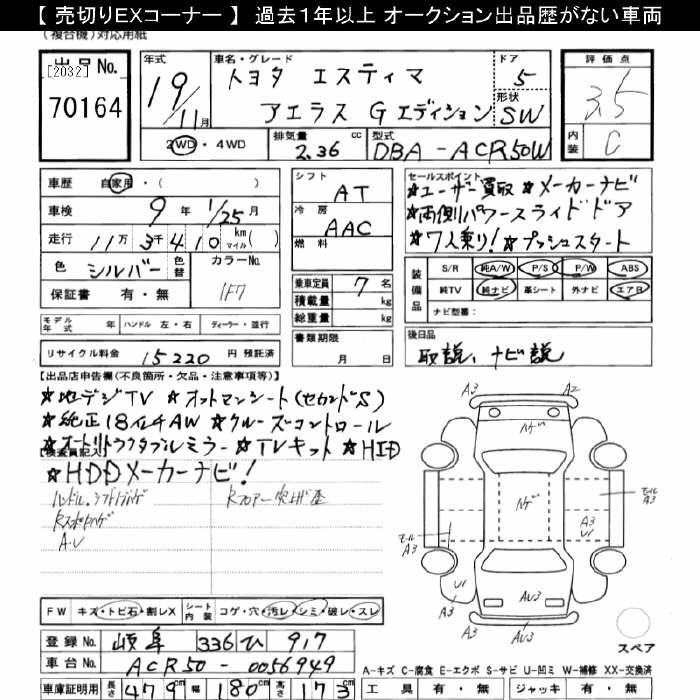 【 売切りEXコーナー 】 過去1年以上 オークション出品歴がない車両
(複合機)対応用紙
出品No. [2032] 70164
年式 19 / 11月
車名・グレード トヨタ エスティマ
アエラス G エディション
ドア 5
形状 SW
評価点 3.5
内装 C
2WD・4WD
排気量 2.36 cc
型式 DBA - ACR50W
車歴 自家用・( )
車検 9年 1/25月
走行 11万 3千 410 km マイル ( )
色 シルバー 色替
カラーNo. 1F7
保証書 有・無
シフト AT
冷房 AAC
燃料
乗車定員 7 名
積載量 kg
総重量 kg
書類期限 月 日
セールスポイント
★ユーザー買取 ★メーカーナビ
★両側パワースライドドア
★7人乗り! ★プッシュスタート
装備品 S/R 純A/W P/S P/W ABS
純TV 純ナビ 革シート 外ナビ エアB
ナビ型番:
モデル年式 年 ハンドル 左・右 ディーラー・並行
リサイクル料金 15220 円 預託済
後日品
取説、ナビ説
【出品店申告欄(不良箇所・欠品・注意事項等)】
★地デジTV ★オットマンシート(セカンドS)
★純正18イチAW ★クルーズコントロール
★オートリトラクタブルミラー ★TVキット ★HID
【検査員記入】
★HDDメーカーナビ!
A3 A2
A3
U1
A3
A3
A3
U1
AU3
A3
AU3
A3
FW キズ・トビ石・割レX
シート内装 コゲ・穴・汚レ・シミ・破レ・スレ
スペア
登録No. 岐阜 336 ひ 917
車台No. ACR50 - 0056949
A-キズ C-腐食 E-エクボ S-サビ U-凹ミ W-補修 XX-交換済
車庫証明用 長さ 479cm 幅 180cm 高さ 173c
工具 有・無 ジャッキ 有・無